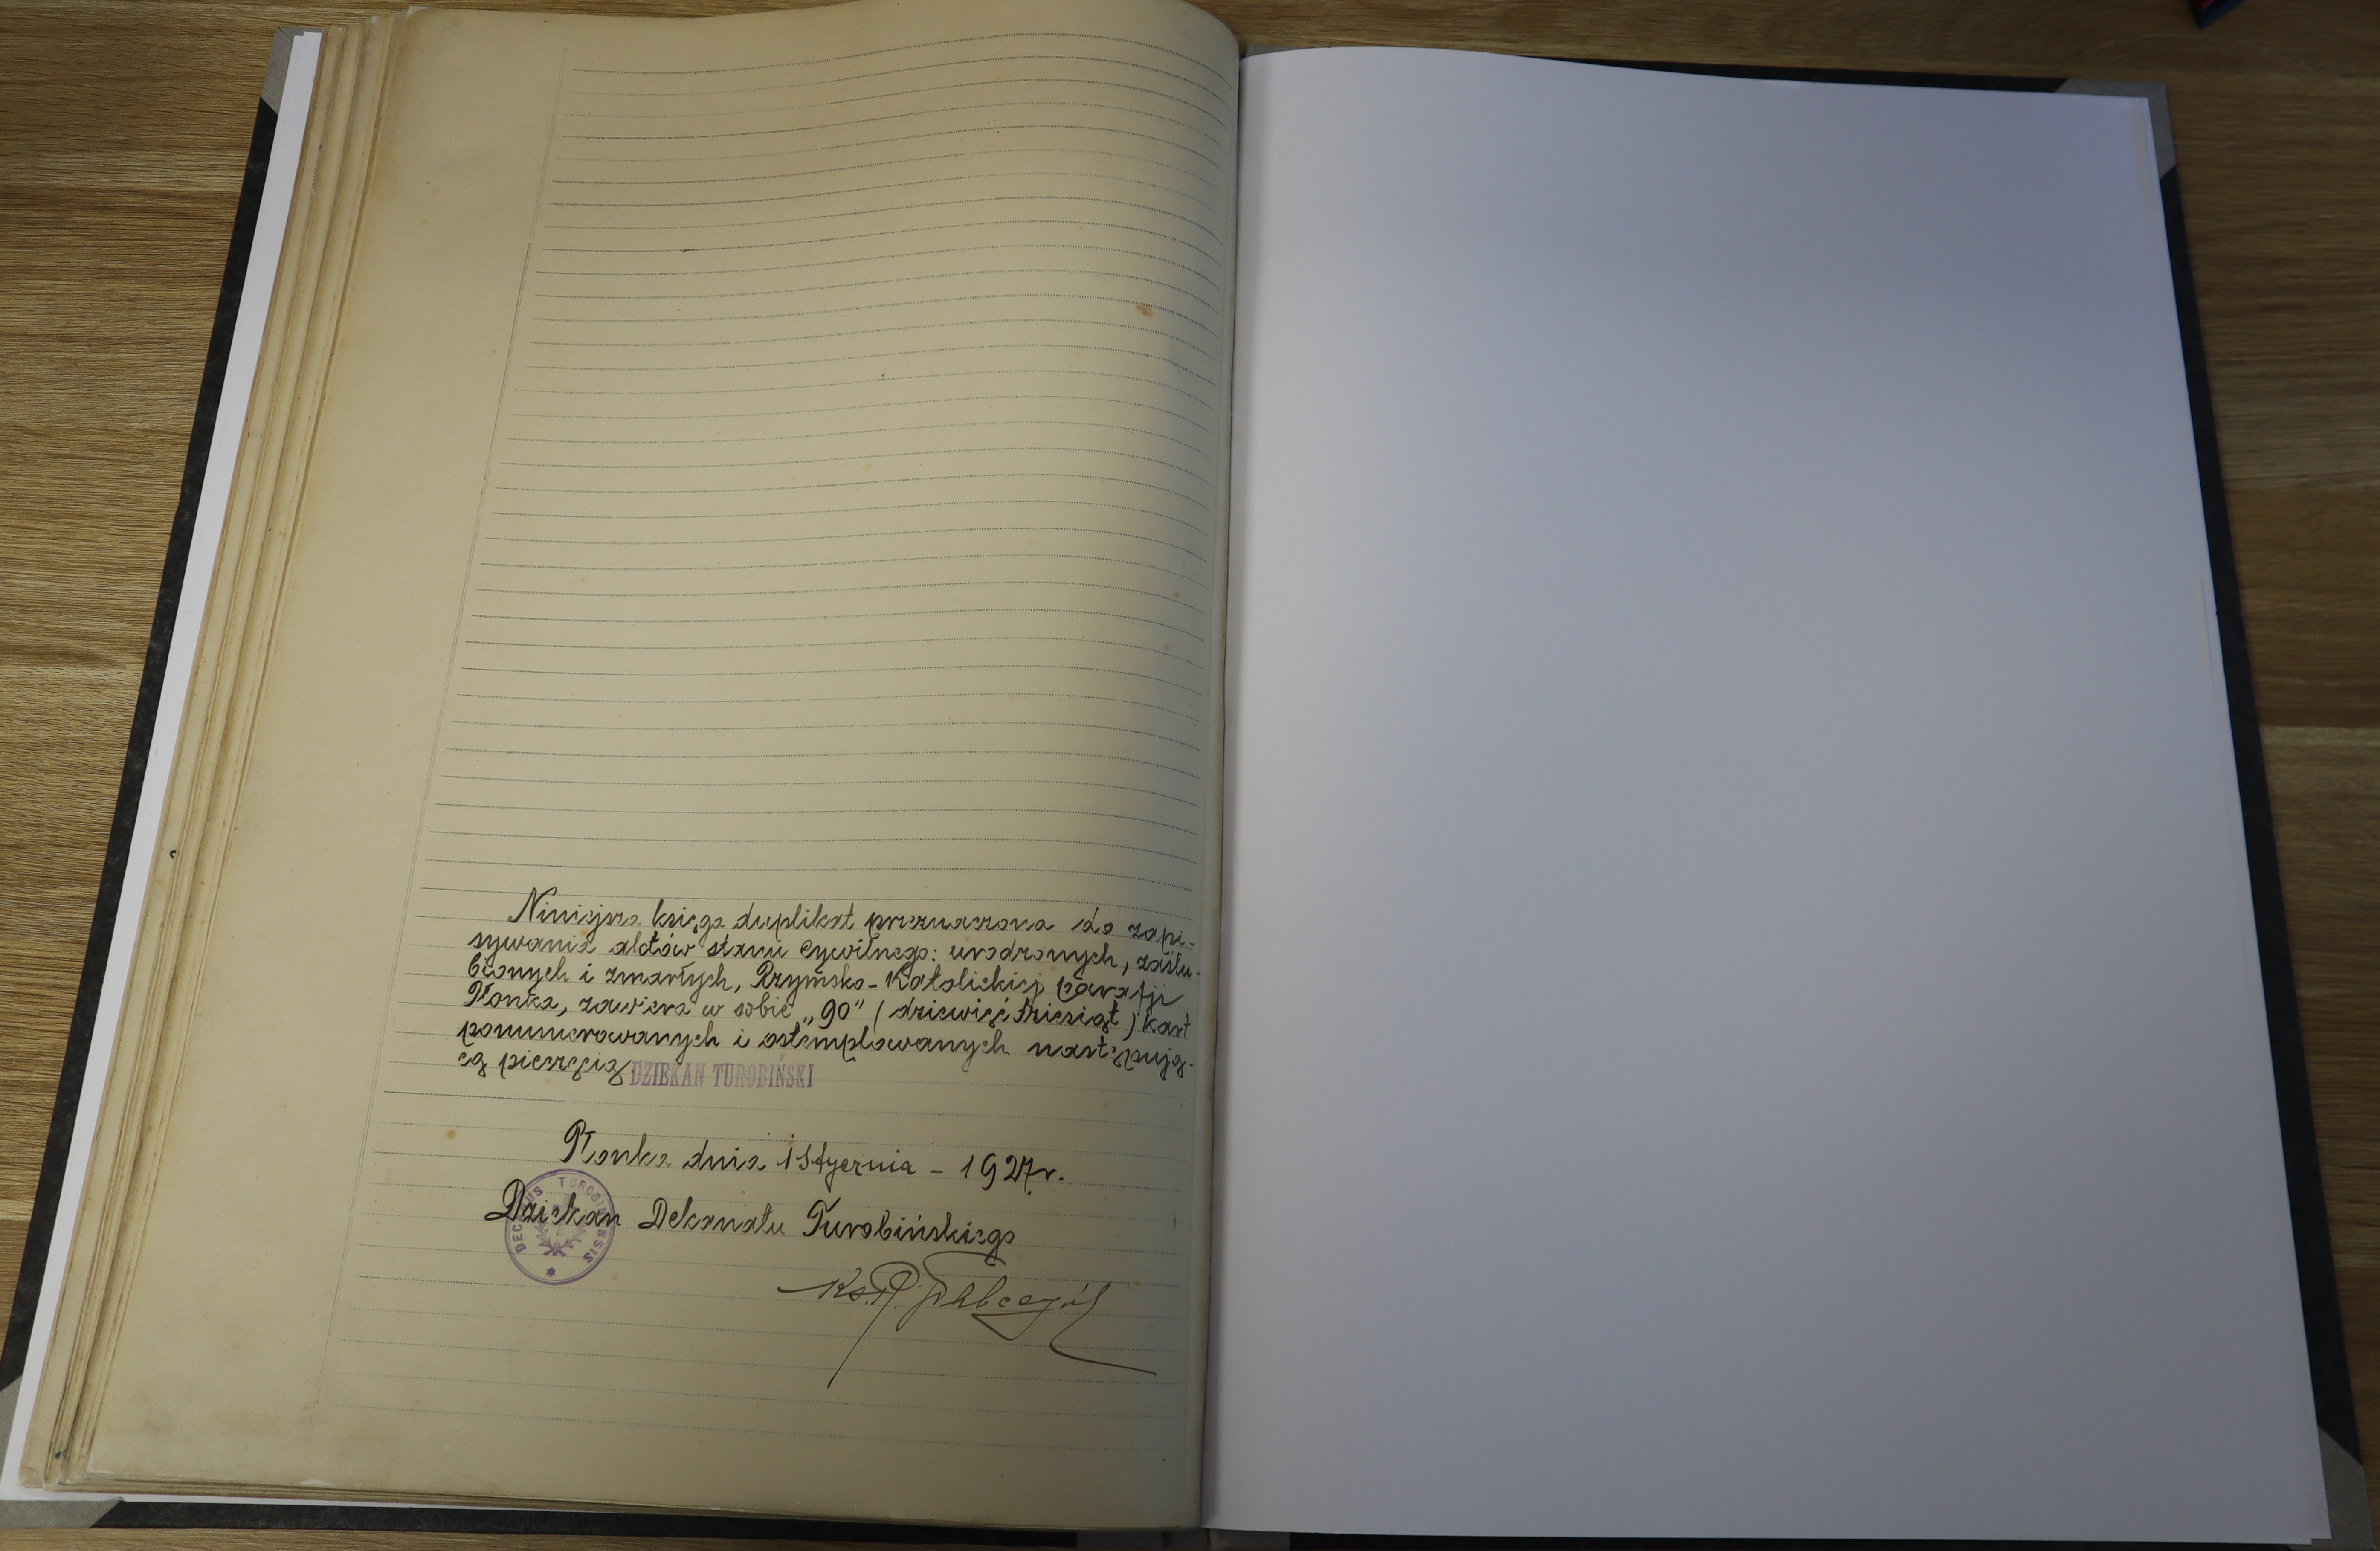 Niniejsza księga duplikat przeznaczona do zapi-
sywania aktów stanu cywilnego: urodzonych, zaślu-
bionych i zmarłych, Rzymsko-Katolickiej parafji
Płonka, zawiera w sobie „90" (dziewięćdziesiąt) kart
ponumerowanych i ostemplowanych następują-
cą pieczęcią
DZIEKAN TUROBIŃSKI
Płonka dnia 1 Stycznia - 1927 r.
Dziekan Dekanatu Turobińskiego
DECANUS TUROBINENSIS
Ks.